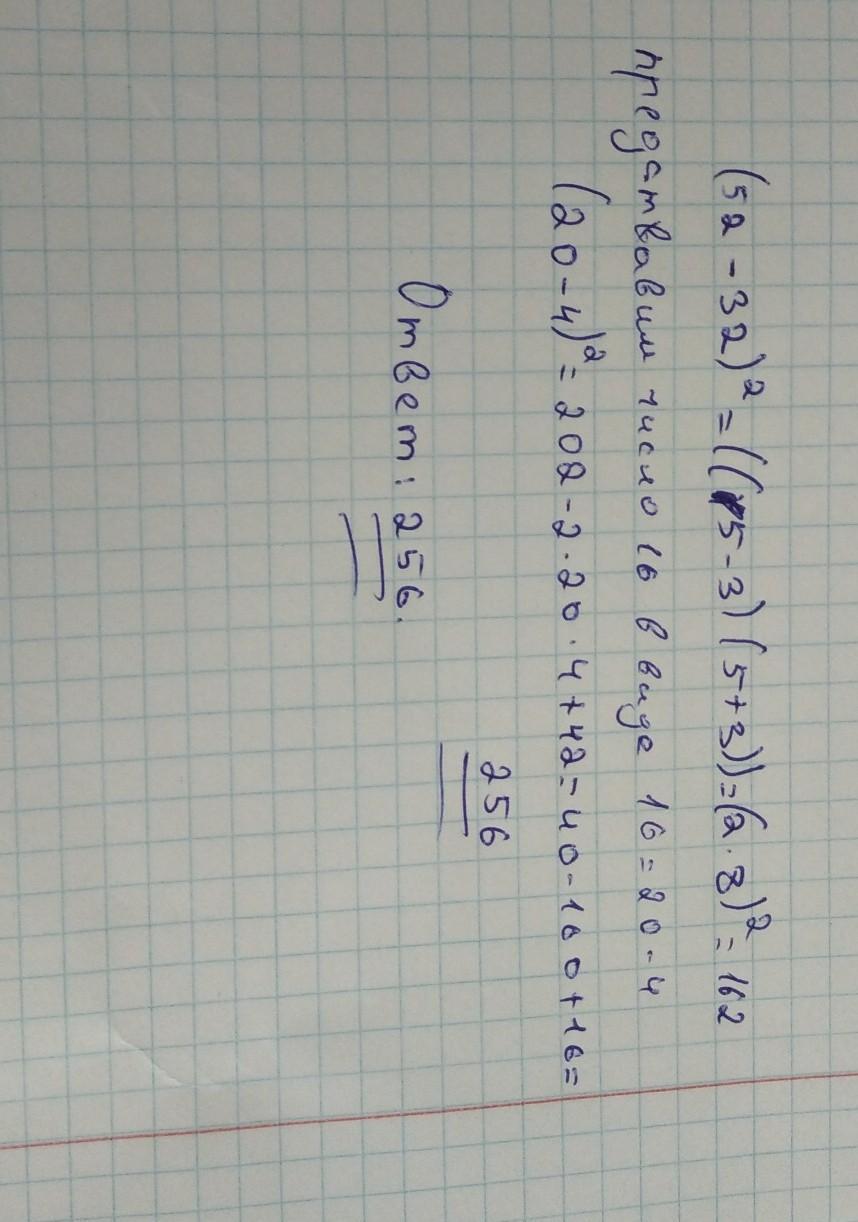 (52-32)² = ((5-3)(5+3)) = (2·8)² = 162
предствавим число 16 в виде 16=20-4
(20-4)² = 202-2·20·4+42=40-160+16=
256
Ответ: 256.